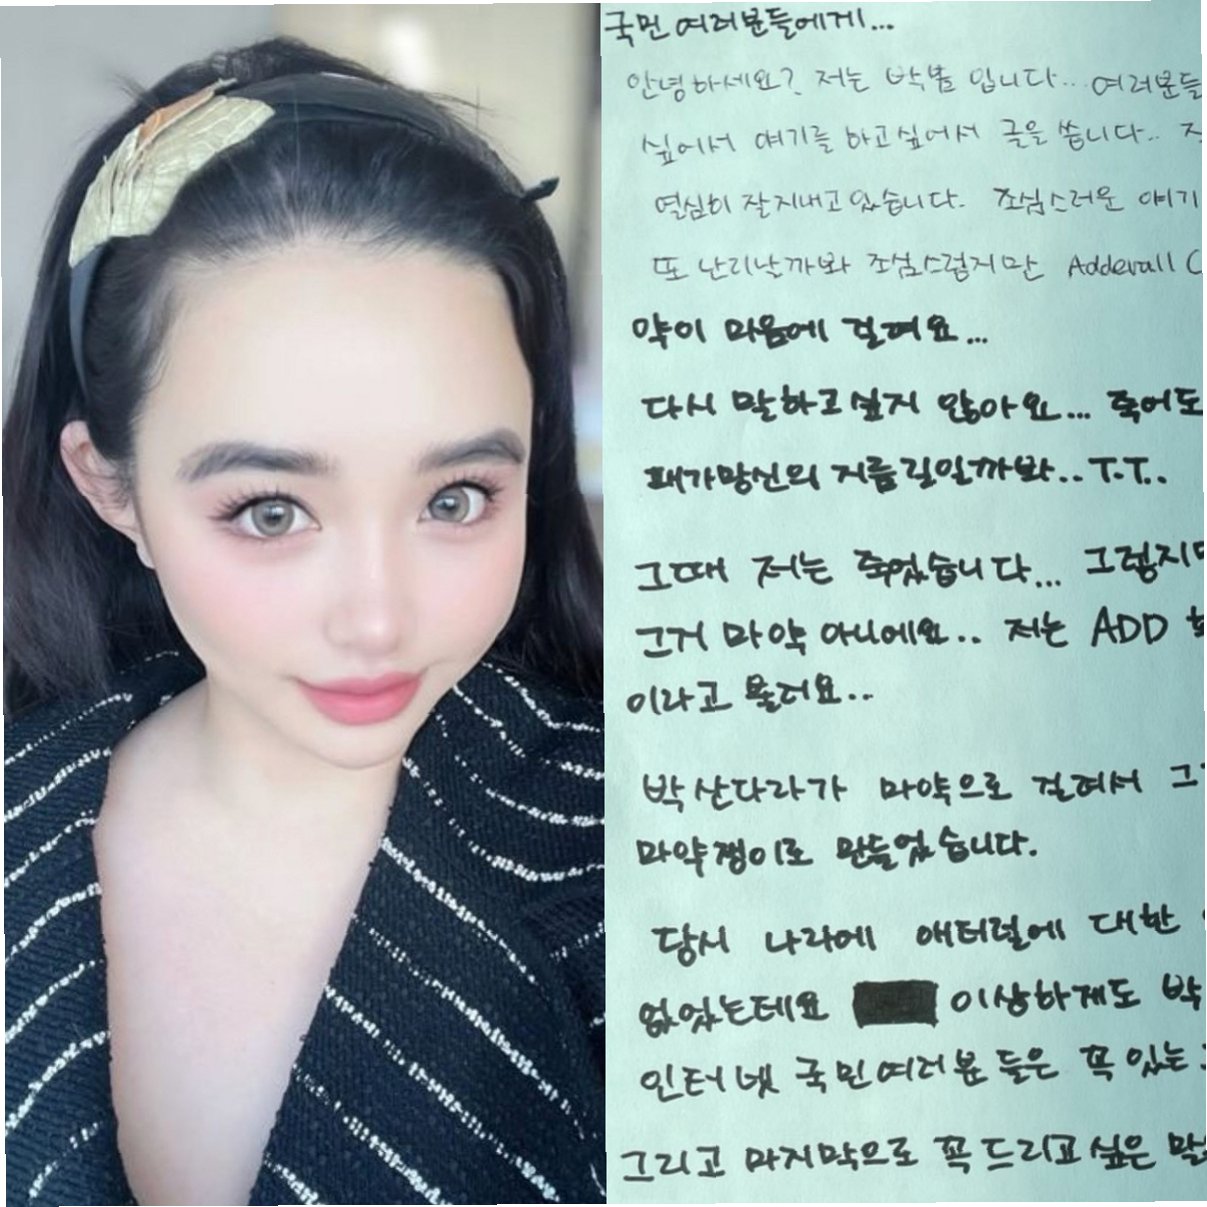 국민 여러분들에게...
안녕하세요? 저는 박봄 입니다... 여러분들
싶어서 얘기를 하고싶어서 글을 씁니다..
열심히 잘지내고있습니다. 조심스러운 얘기
또 난리날까봐 조심스럽지만 Adderall
약이 마음에 걸려요...
다시 말하고싶지 않아요... 죽어도
패가망신의 지름길일까봐.. T.T..
그때 저는 죽었습니다... 그렇지
그거 마약 아니에요.. 저는 ADD
이라고 불러요..
박산다라가 마약으로 걸려서 그
마약쟁이로 만들었습니다.
당시 나라에 애터럴에 대한
없었는데요 이상하게도 박
인터넷 국민여러분 들은 꼭 있는
그리고 마지막으로 꼭 드리고싶은 말